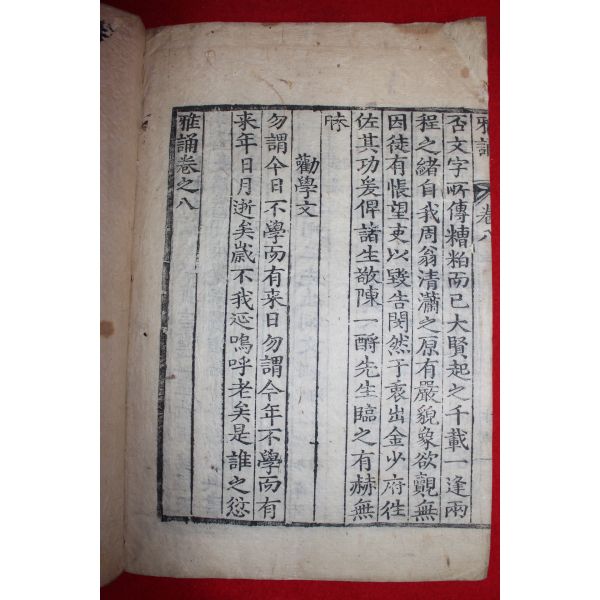 雅誦 卷八
否文字所傳糟粕而已大賢起之千載一逢兩
程之緒自我周翁清瀟之原有嚴貌象欲覿無
因徒有悵望吏以毀告閔然于衷出金少府往
佐其功爰俾諸生敬陳一酹先生臨之有赫無
勸學文
勿謂今日不學而有来日勿謂今年不學而有
来年日月逝矣歲不我延嗚呼老矣是誰之愆
雅誦卷之八